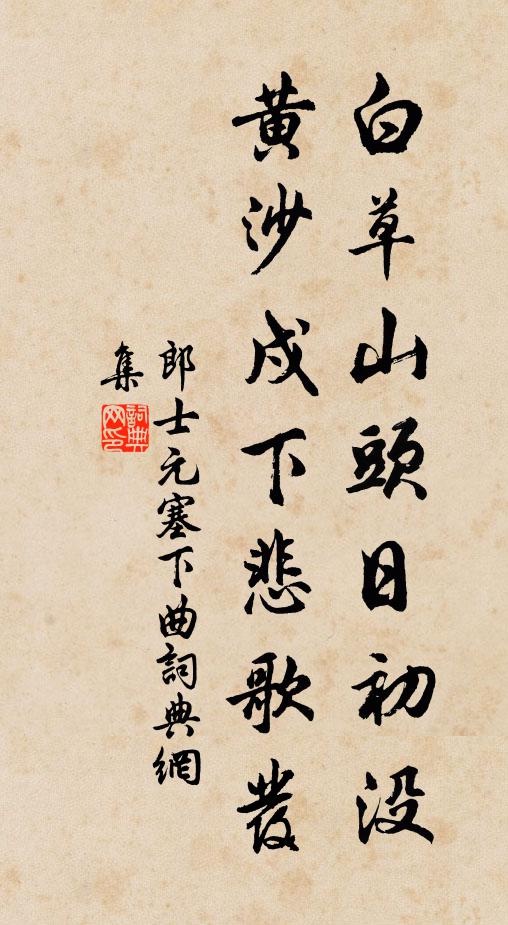 白草山頭日初没
黃沙戍下悲歌發
郎士元塞下曲詞典網
集
詞典网印